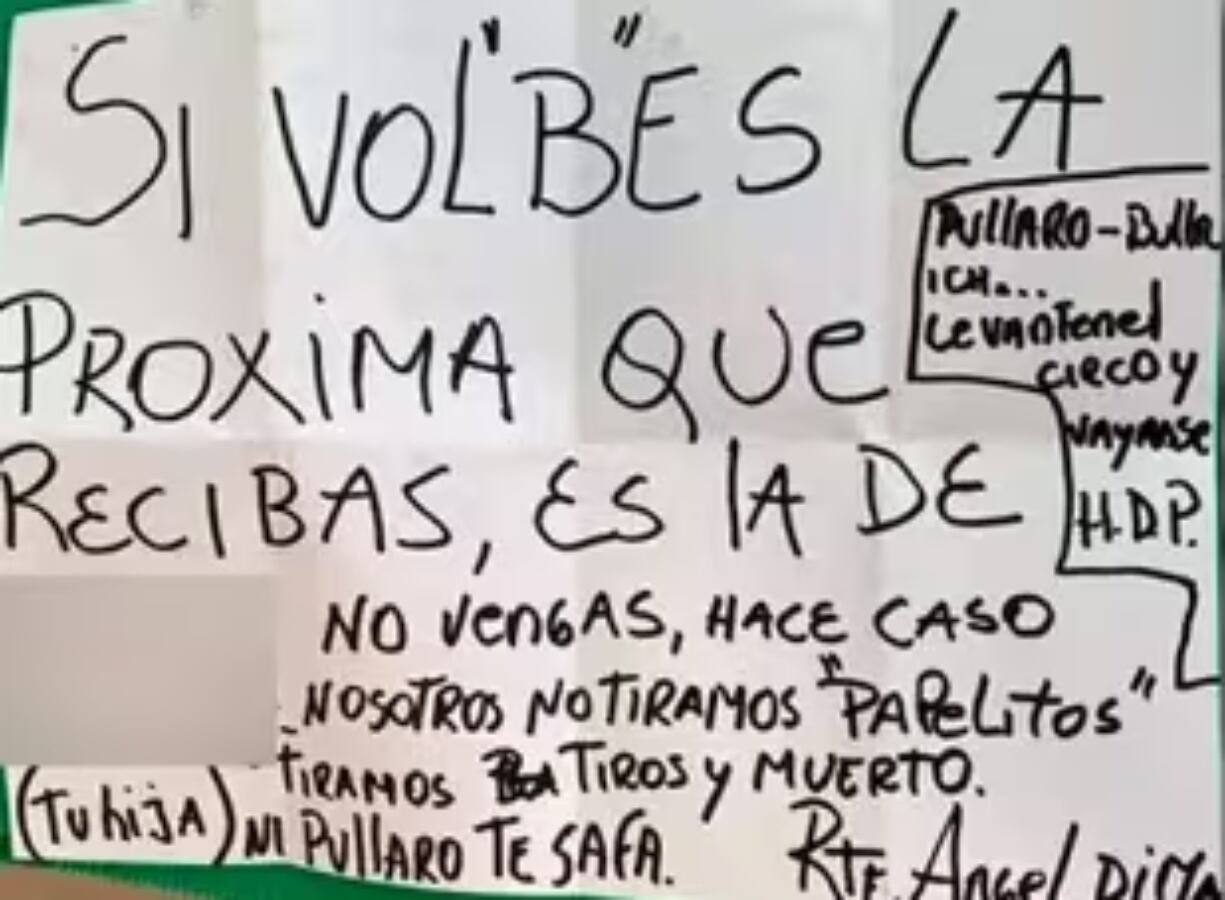 SI VOL"B"ES LA
PROXIMA QUE
RECIBAS, ES LA DE
PULLARO-Bulla
ICH...
Levanten el
CIRCO Y
VAYANSE
H.D.P.
NO VENGAS, HACE CASO
NOSOTROS NO TIRAMOS "PAPELITOS"
TIRAMOS TIROS Y MUERTO.
(Tu hija) NI PULLARO TE SAFA.
RTE. Angel